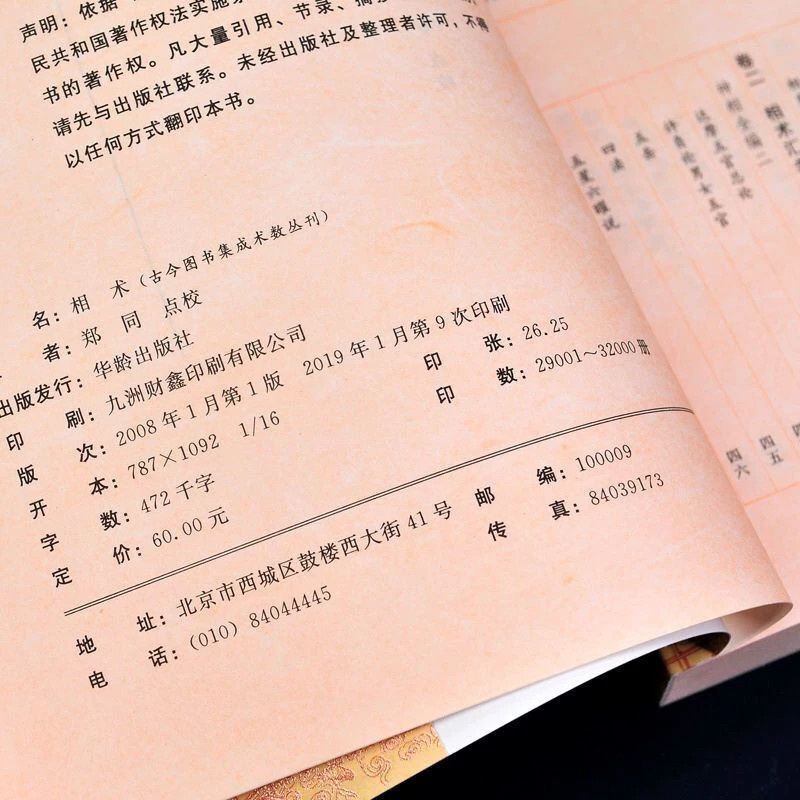 声明：依据
民共和国著作权法实施
书的著作权。凡大量引用、节录、摘
请先与出版社联系。未经出版社及整理者许可，不得
以任何方式翻印本书。
名：相 术（古今图书集成术数丛刊）
者：郑 同 点校
出版发行：华龄出版社
印 刷：九洲财鑫印刷有限公司
版 次：2008年1月第1版 2019年1月第9次印刷
开 本：787×1092 1/16 印 张：26.25
字 数：472千字 印 数：29001～32000册
定 价：60.00元
地 址：北京市西城区鼓楼西大街41号 邮 编：100009
电 话：(010) 84044445 传 真：84039173
卷二 相术汇
神相全编二
达摩五官总论
许负论男女五官
五岳
四渎
五星六曜说
四六
四五